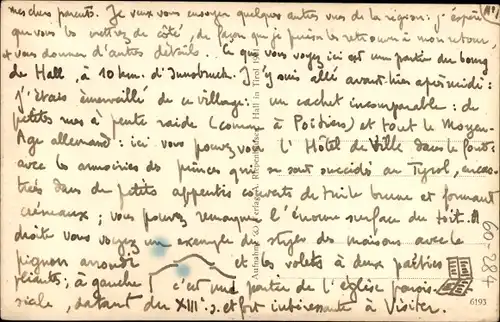 mes chers parents. Je veux vous envoyer quelques autres vues de la région : j'espère
que vous les mettrez de côté, de façon que je puisse les retrouver à mon retour
+ vous donner d'autres détails. Ce que vous voyez ici est une partie du bourg
de Hall, à 10 km. d'Innsbruck. J'y suis allé avant-hier après-midi :
j'étais émerveillé de ce village : un cachet incomparable : de
petites rues à pente raide (comme à Poitiers) et tout le Moyen-
Age allemand : ici vous pouvez voir l'Hôtel de Ville dans le fond
avec les armoiries des princes qui se sont succédés au Tyrol, encas-
trées dans de petits appentis couverts de tuile brune et formant
créneaux ; vous pouvez remarquer l'énorme surface du toit. A
droite vous voyez un exemple du style des maisons avec le
pignon arrondi et les volets à deux parties
pliantes ; à gauche c'est une partie de l'église parois-
siale, datant du XIIIe s. et fort intéressante à visiter.
Aufnahme u. Verlag Hall in Tirol
60-284
6193